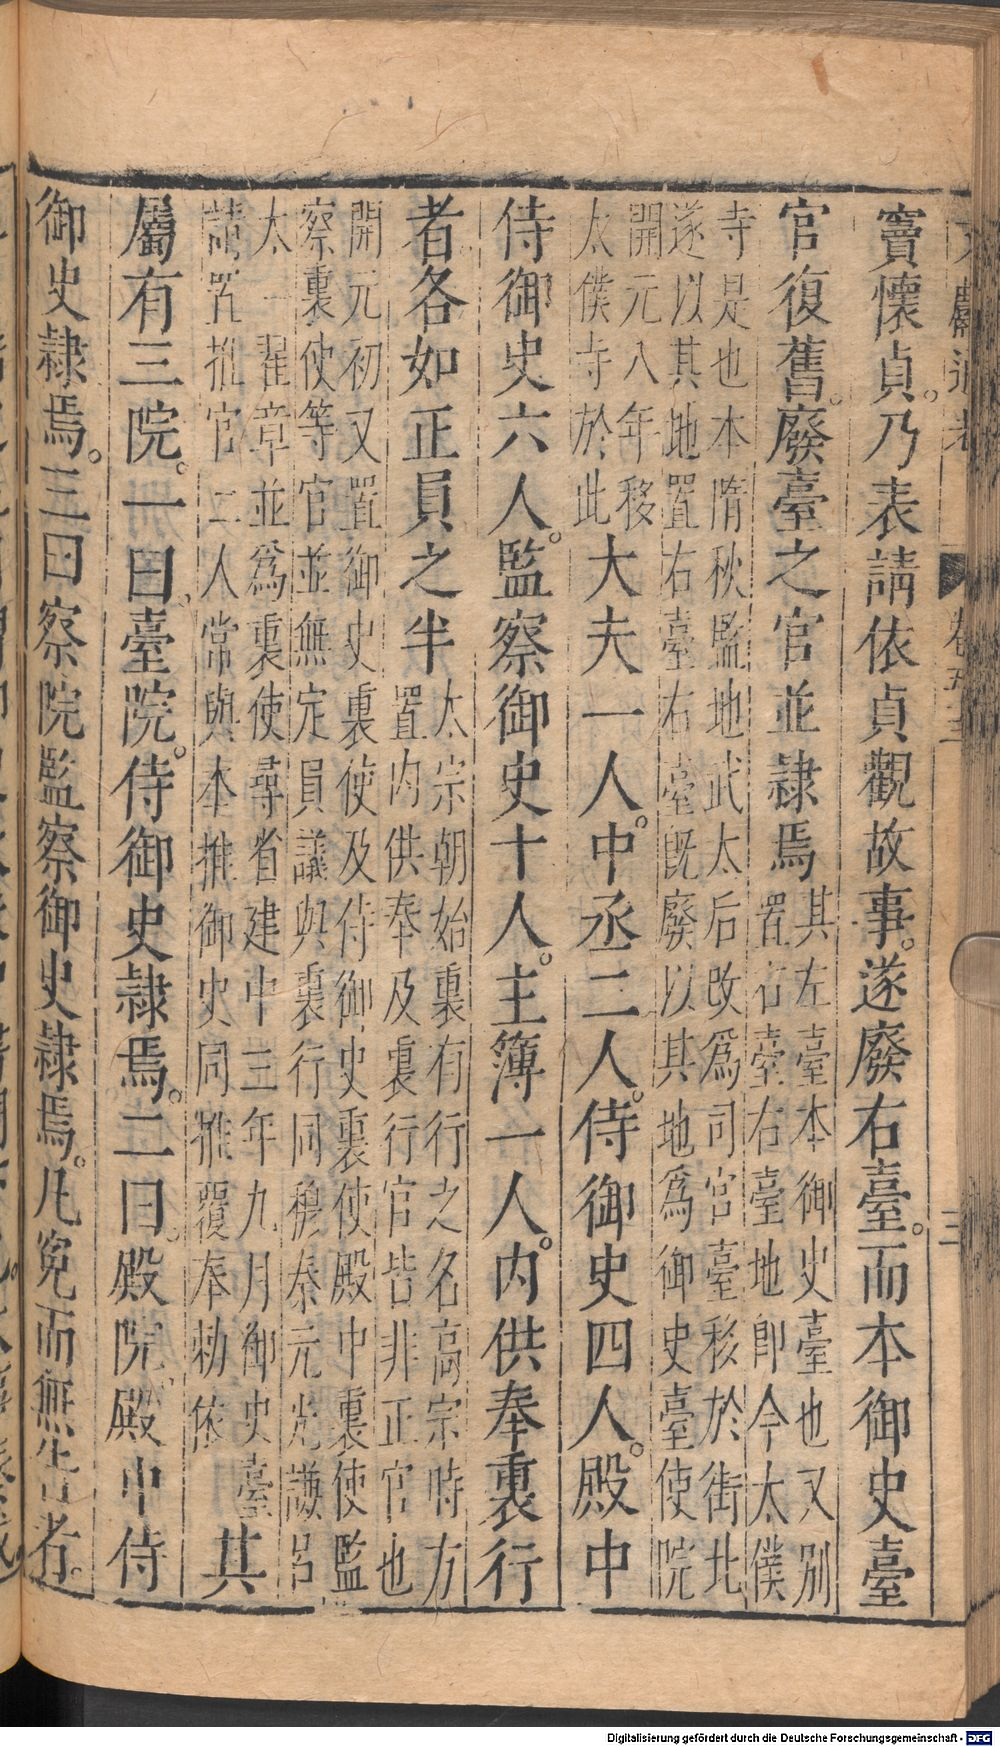 文獻通考
卷五十三
三
竇懷貞。乃表請依貞觀故事。遂廢右臺。而本御史臺
官復舊。廢臺之官並隸焉
其左臺本御史臺也又別
置右臺右臺地卽今太僕
寺是也本隋秋監地武太后改爲司宮臺移於街北
遂以其地置右臺右臺旣廢以其地爲御史臺使院
開元入年移
太僕寺於此
大夫一人。中丞二人。侍御史四人。殿中
侍御史六人。監察御史十人。主簿一人。內供奉裏行
者各如正員之半
太宗朝始裏有行之名高宗時方
置內供奉及裏行官皆非正官也
開元初又置御史裏使及侍御史裏使殿中裏使監
察裏使等官並無定員議與裏行同穆泰元光謙呂
太一翟章並爲裏使尋省建中三年九月御史臺
請置推官二人常與本推御史同推覆奉勑依
其
屬有三院。一曰臺院。侍御史隸焉。二曰。殿院殿中侍
御史隸焉。三曰察院監察御史隸焉。凡寃而無告者。
Digitalisierung gefördert durch die Deutsche Forschungsgemeinschaft - DFG